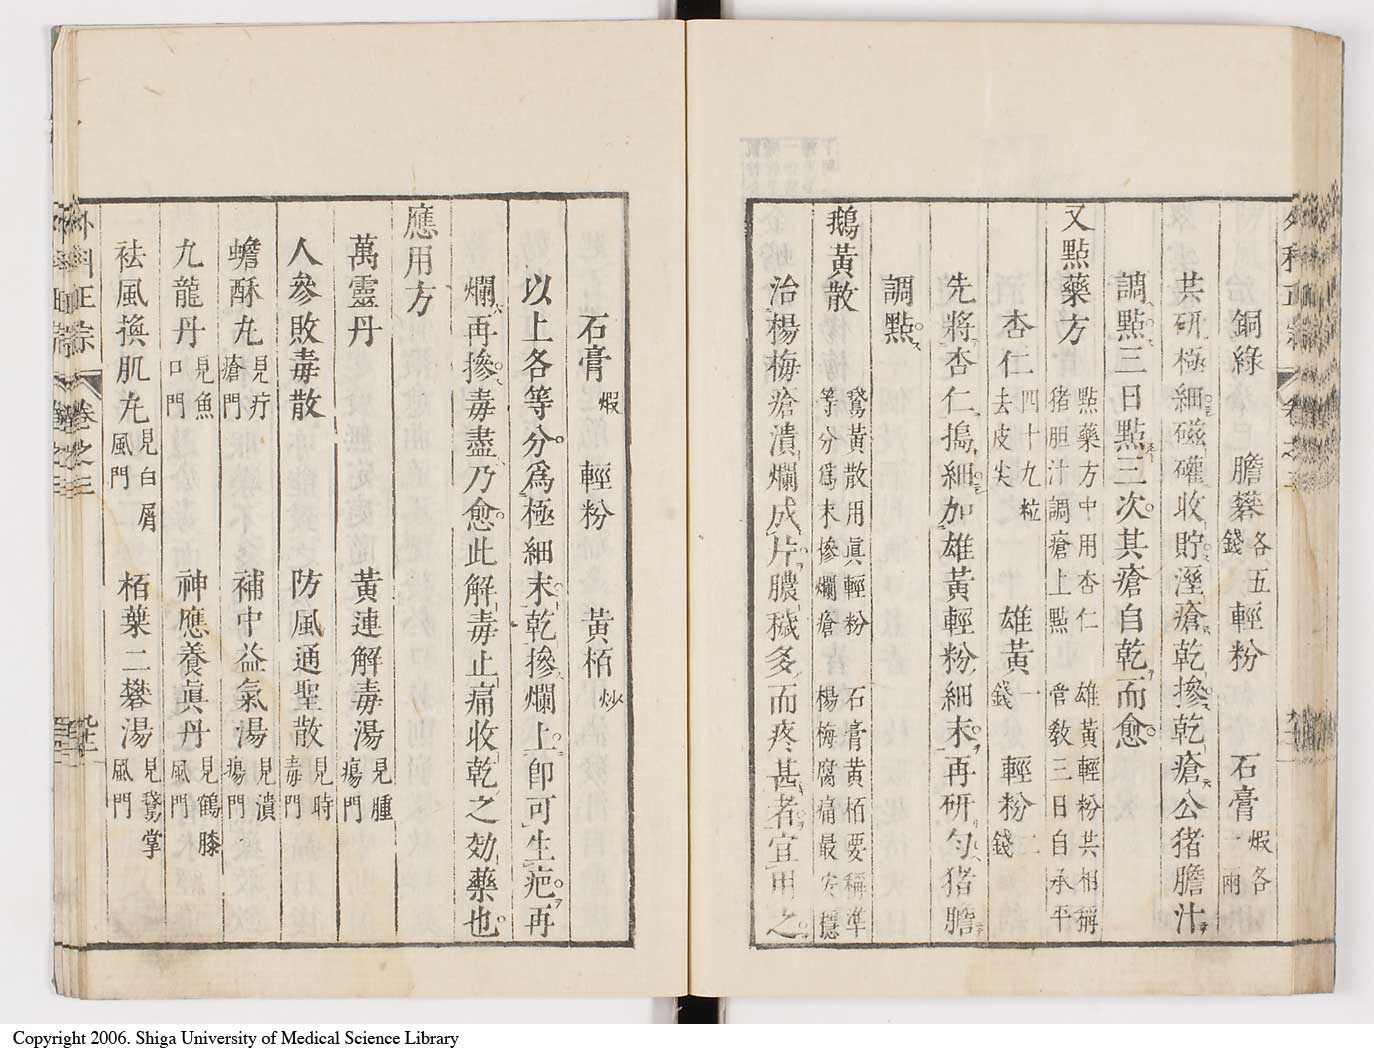 銅綠　膽礬各五錢　輕粉　石膏煆各一兩
共研極細磁礶收貯溼瘡乾摻乾瘡公猪膽汁
調點三日點三次其瘡自乾而愈
又點藥方　點藥方中用杏仁　雄黃輕粉共相稱　猪胆汁調瘡上點　管敎三日自承平
杏仁四十九粒去皮尖　雄黃一錢　輕粉二錢
先將杏仁搗細加雄黃輕粉細末再研勻猪膽
調點
鵝黃散　鵞黃散用眞輕粉　石膏黃栢要稱準　等分爲末摻爛瘡　楊梅腐痛最安穩
治楊梅瘡潰爛成片膿穢多而疼甚者宜用之
石膏煆　輕粉　黃栢炒
以上各等分爲極細末乾摻爛上卽可生疤再
爛再摻毒盡乃愈此解毒止痛收乾之効藥也
應用方
萬靈丹　黃連解毒湯見腫瘍門
人參敗毒散　防風通聖散見時毒門
蟾酥丸見疔瘡門　補中益氣湯見潰瘍門
九龍丹見魚口門　神應養眞丹見鶴膝風門
祛風換肌丸見白屑風門　栢葉二礬湯見鵞掌風門
外科正宗　卷之三
Copyright 2006. Shiga University of Medical Science Library